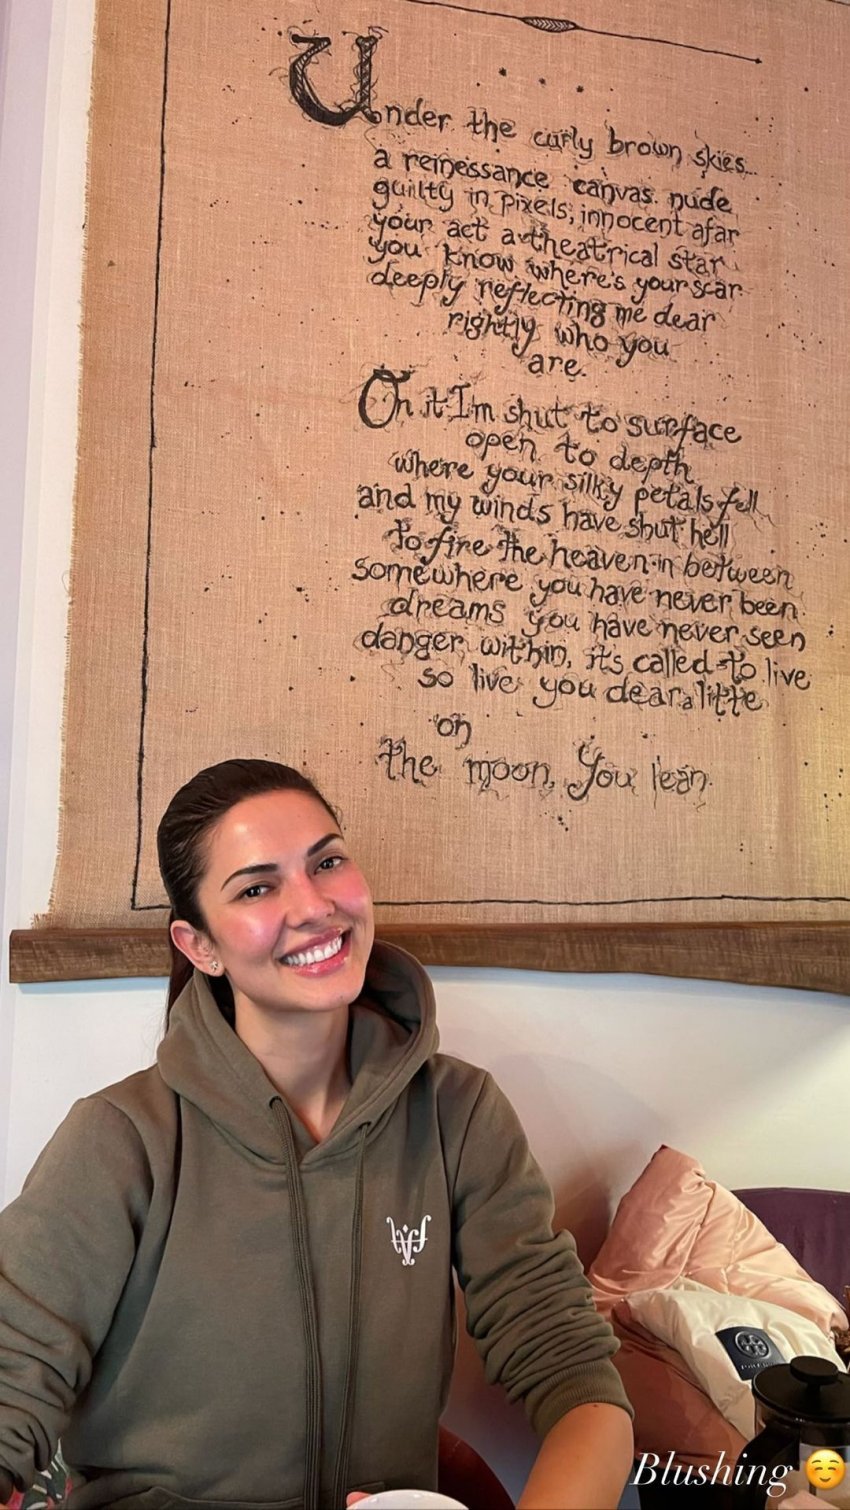 Under the curly brown skies...
a reinessance canvas nude
guilty in pixels, innocent afar
your act a theatrical star
you know where's your scar
deeply reflecting me dear
rightly who you
are.
On it I'm shut to surface
open to depth
where your silky petals fell
and my winds have shut hell
to fire the heaven in between
somewhere you have never been
dreams you have never seen
danger within, it's called to live
so live you dear a litte
on
the moon, you lean.
Blushing ☺️